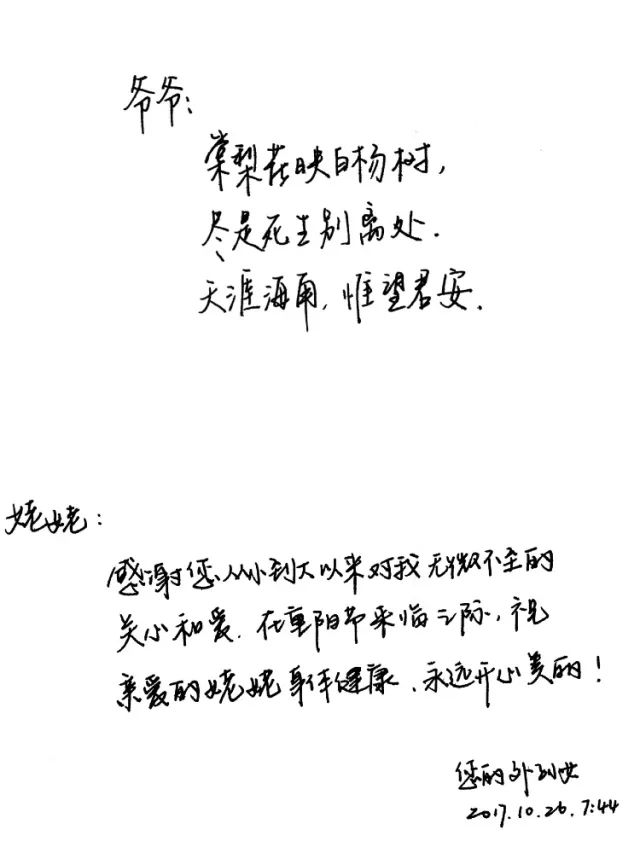 爷爷：
棠梨花映白杨树，
尽是死生别离处.
天涯海角，惟望君安.
姥姥：
感谢您从小到大以来对我无微不至的
关心和爱.在重阳节来临之际，祝
亲爱的姥姥身体健康、永远开心美丽！
您的外孙女
2017.10.26.7:44